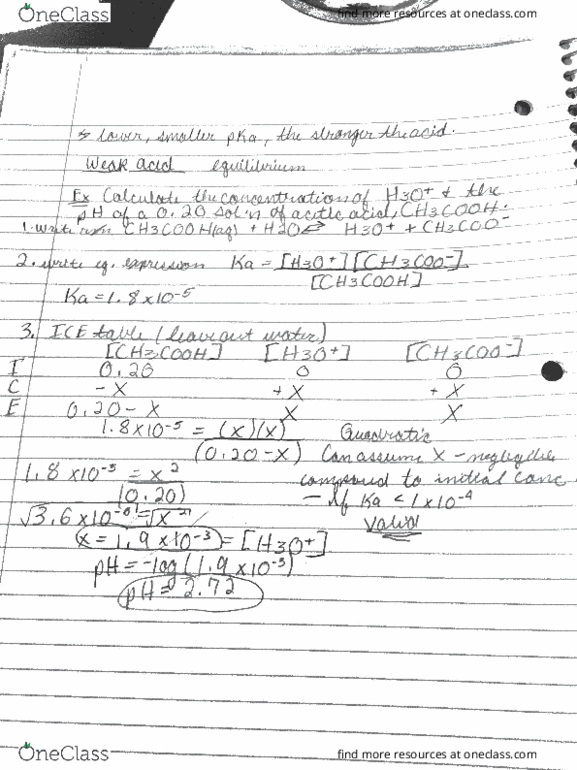 OneClass
find more resources at oneclass.com
↳ lower, smaller pKa, the stronger the acid.
Weak acid equilibrium
Ex Calculate the concentration of H3O+ & the
pH of a 0.20 sol'n of acetic acid, CH3COOH.
1. write rxn CH3COOH(aq) + H2O ⇌ H3O+ + CH3COO-
2. write eq. expression Ka = [H3O+][CH3COO-]
[CH3COOH]
Ka = 1.8 x 10-5
3. ICE table (leave out water)
[CH3COOH] [H3O+] [CH3COO-]
I 0.20 0 0
C - X + X + X
E 0.20 - X X X
1.8 x 10-5 = (x)(x) Quadratic
(0.20 - x) Can assume X - negligible
1.8 x 10-5 = x2 compound to initial conc
(0.20) - If Ka < 1 x 10-4
√3.6 x 10-6 = √x2 Valid
x = 1.9 x 10-3 = [H3O+]
pH = -log(1.9 x 10-3)
pH = 2.72
OneClass
find more resources at oneclass.com